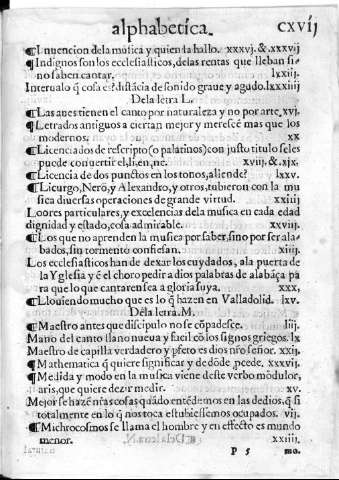 alphabetica. cxvij
¶Inuencion dela musica y quien la hallo. xxxvj. &.xxxvij
¶Indignos son los ecclesiasticos, delas rentas que lleban si-
no saben cantar. lxxiij.
Interualo q̃ cosa es? distãcia de sonido graue y agudo. lxxxiiij
Dela letra L.
¶Las aues tienen el canto por naturaleza y no por arte. xvj.
¶Letrados antiguos a ciertan mejor y merescẽ mas que los
modernos. xx
¶Licenciados de rescripto (o palatinos) con justo titulo se les
puede conuertir el, li, en, ne. xviij. &. xjx.
¶Licencia de dos punctos en los tonos, aliende? lxxv.
¶Licurgo, Nerõ, y Alexandro, y otros, tubieron con la mu
sica diuersas operaciones de grande virtud. xxiiij
Loores particulares, y excelencias dela musica en cada edad
dignidad y estado, cosa admirable. xxviij.
¶Los que no aprenden la musica por saber, sino por ser ala-
bados, sin tormento confiesan. xiij.
Los ecclesiasticos han de dexar los cuydados, ala puerta de
la Yglesia y ẽ el choro pedir a dios palabras de alabãça pa
ra que lo que cantaren sea a gloria suya. xxx,
¶Llouiendo mucho que es lo q̃ hazen en Valladolid. lx.
Dela letra. M.
¶Maestro antes que discipulo no se cõpadesce. liij.
Mano del canto llano nueua y facil cõ los signos griegos. lx
Maestro de capilla verdadero y pfeto es dios nr̃o señor. xxij.
¶Mathematica q̃ quiere significar y de dõde, pcede. xxxvij
¶Medida y modo en la musica viene deste verbo modulor,
aris, que quiere dezir medir. xv.
Mejor se hazẽ nr̃as cosas quãdo entẽdemos en las de dios, q̃ si
totalmente en lo q̃ nos toca estubiessemos ocupados. vij.
¶Michrocosmos se llama el hombre y en effecto es mundo
menor. xxiiij.
P 5 mo.